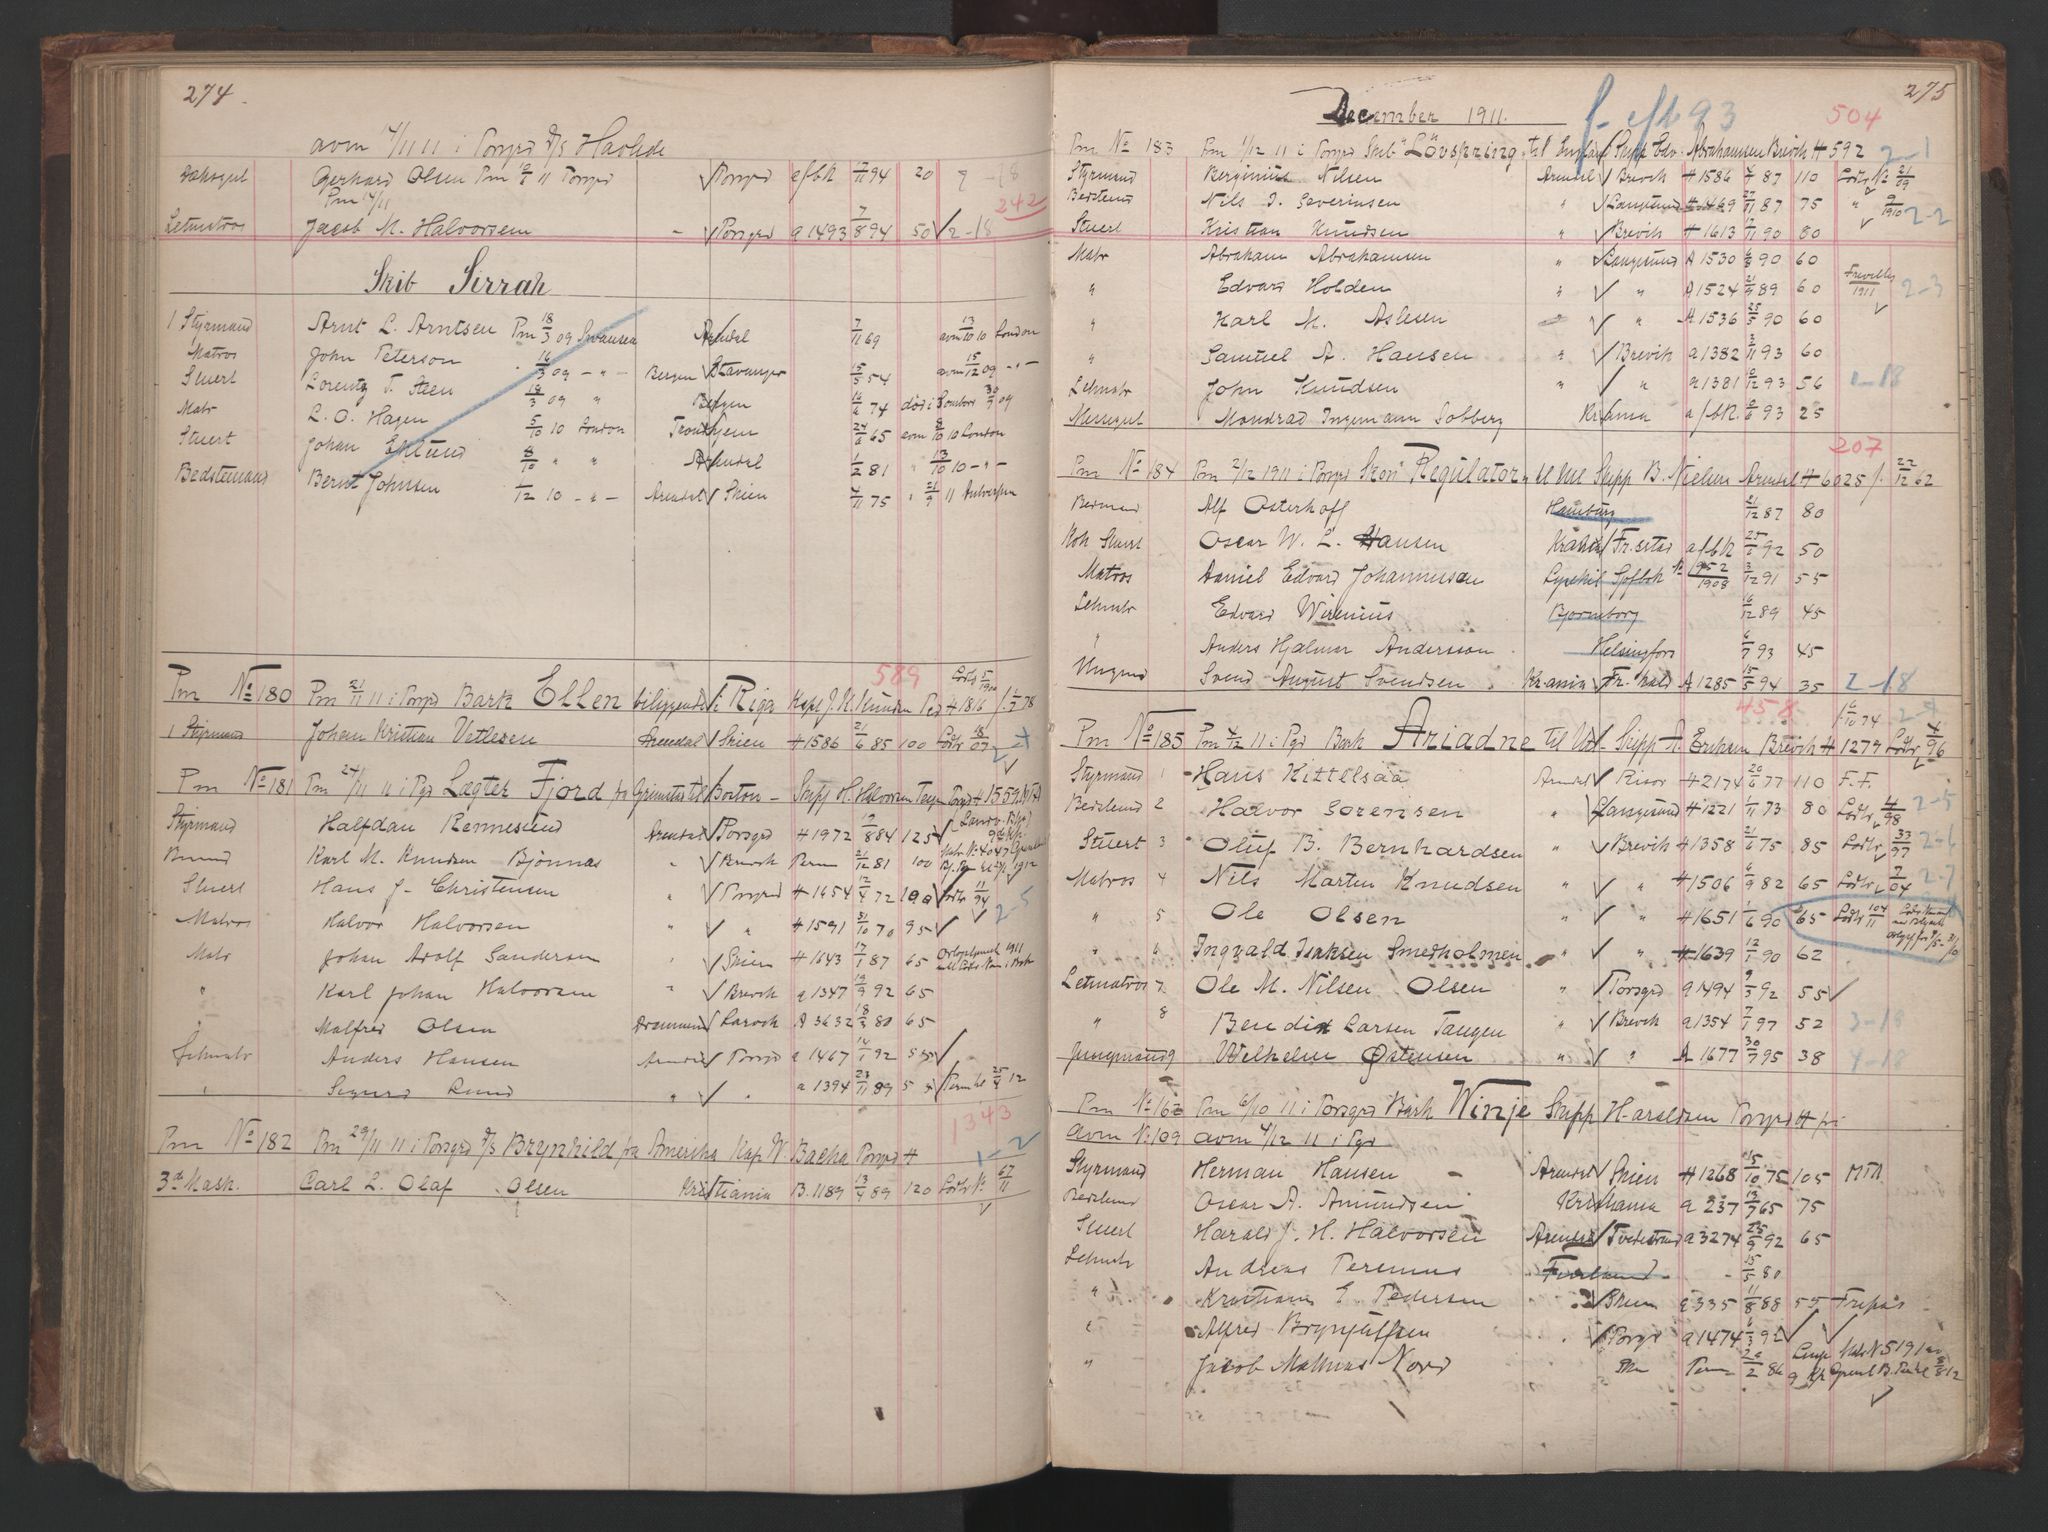 274.
avm 4/11 11 i Porsgrd
Dæksgut Gerhard Olsen Pm 11 Porsgrd Porsgrd afbk 94 20
Pm 4/11 242
Letmatros Jacob M. Halvorsen - Porsgrd a 1493 7/8 94 50 2-18
Skib Sirrah
1 Styrmand Arnt L. Arntsen Pm 18/3 09 Swansea Arendal 7/11 69 avm 13/10 10 London
Matros John Peterson 16/3 09 - " - Bergen Stavanger 15/5 54 avm 15/12 09 - " -
Stuert Lorentz T. Steen 18/3 09 " Bergen 74 død i London 30/9 09
Matr L. O. Hagen 5/10 10 London Trondhjem 24/6 65 avm 8/10 10 London
Stuert Johan Eklund 8/10 " " Arendal 1/2 81 " 13/10 10 - " -
Bedstemand Bernt Johnsen 1/12 10 - " - Arendal Skien 4/11 75 " 21/9 11 Antwerpen
589
Pm No 180 Pm 21/11 11 i Porsgrd Bark Ellen beliggende i Riga Kapt J. K. Knudsen H 1816
1 Styrmand Johan Kristian Vetlesen Arendal Skien H 1586 21/6 85 100 Lodtr 07
Pm No 181 Pm 24/11 11 i Pgd Lægter Fjord fra Grimstad til Boston - Skipp H. Halvorsen Porsgrd H 1559
Styrmand Halfdan Rennesund Arendal Porsgrd H 1972 84 125
Karl M. Knudsen Bjønnes " Brevik Perm 21/12 81 100
Stuert Hans J. Christensen " Porsgrd H 1654 12/4 72 100 Lodtr 11/94
2-5
Matros Halvor Halvorsen " " H 1591 31/10 70 95
Matr Johan Adolf Sandersen " Skien H 1643 17/1 87 65
" Karl Johan Halvorsen " Brevik a 1347 19/9 92 65
" Malfred Olsen Drammen Larvik A 3632 80 65
Letmatr Anders Hansen Arendal Porsgrd a 1467 14/1 92
" Sigurd Lund " " a 1394 23/11 89 25/4 12
1343
Pm No 182 Pm 29/11 11 i Porsgrd D/S Brynhild fra Amerika Kap W. Bacha Porsgrd H 1-2
3d Mask. Carl L. Olaf Olsen Kristiania B. 1189 13/4 89 120 Lodtr No 67/11
275
December 1911. f. efbk 93 504
Pm No 183 Pm 1/12 11 i Porsgrd Skib "Lövspring" til England Skipp Edv. Abrahamsen Brevik H 592 2-1
Styrmand Berginius Nilsen Arendal Brevik H 1586 87 110 Lodtr No 21/09
Bedstmd Nils J. Severinsen " Langesund H 1469 27/11 87 75 " 9/1910 2-2
Stuert Kristian Knudsen " Brevik H 1613 90 80
Matr Abraham Abrahamsen " Langesund A 1530 90 60
" Edvard Holden " " A 1524 21/9 89 60 1911 2-3
" Karl M. Aslesen " " A 1536 25/5 90 60
" Samuel A. Hansen " Brevik a 1382 3/11 93 60
Letmatr John Knudsen " " a 1381 93 56
Messegut Mondrad Ingemann Solberg Kristiania afbk 93 25
207
Pm No 184 Pm 2/12 1911 i Porsgrd Skon "Regulator" Skipp B. Nielsen Arendal H 6025 22/12 62
Bedmand Alf Osterhoff Hamburg 21/12 87 80
Kok Stuert Oscar W. L. Hansen Krania Fr.stad afbk 25/6 92 50
Matros Daniel Edvard Johannessen Lysekil 952/1908 3/12 91 55
Letmatr Edvard Wirenius Bjorneborg 6/12 89 45
" Anders Hjalmar Andersson Helsingfors 6/7 93 45
Ungmd Svend August Svendsen Kr.ania Fr. hald A 1285 15/5 94 35 2-18
458
Pm No 185 Pm 4/12 11 i Pgd Bark Ariadne Skipp A. Eriksen Brevik H 1279 Lodtr 4/96
Styrmand 1 Hans Kittelsaa Arendal Risør H 2174 20/6 77 110 F.F.
Bedstmd 2 Halvor Sorensen " Langesund H 1221 1/11 73 80 Lodtr /98 2-5
Stuert 3 Oluf B. Bernhardsen " Brevik H 1358 21/6 75 85 Lodtr 33/97 2-6
Matros 4 Nils Marten Knudsen " " H 1506 6/9 82 65 Lodtr 7/04 2-7
" 5 Ole Olsen " " H 1651 1/6 90 65 Lodtr 104/11
" 6 Ingvald Isaksen Smedholmen " " H 1639 12/1 90 62
Letmatros 7 Ole M. Nilsen Olsen " Porsgrd a 1494 9/3 92 55
" 8 Bendix Larsen Tangen " Brevik a 1354 7/1 97 52 3-18
Jungmand 9 Wilhelm Østensen " " A 1677 30/7 95 38 4-18
Pm No 162 Pm 6/10 11 i Porsgrd Bark Winje Skipp Haraldsen Porsgrd H
avm No 109 avm 4/12 11 i Pgd
Styrmand Herman Hansen - Arendal Skien H 1268 15/10 75 105
Bedstmd Oscar A. Amundsen Kristiania a 237 13/7 65 75
Stuert Harald J. H. Halvorsen Arendal Tvedestrand a 3274 25/9 92 65
Letmatr Andreas Finland - 15/5 80
" Kristians E. Pedersen " Skien a 335 11/8 88 55
" Alfred Brynjulfsen " Porsgrd a 1474 6/3 92
" Jacob Mathias Nord 2 86